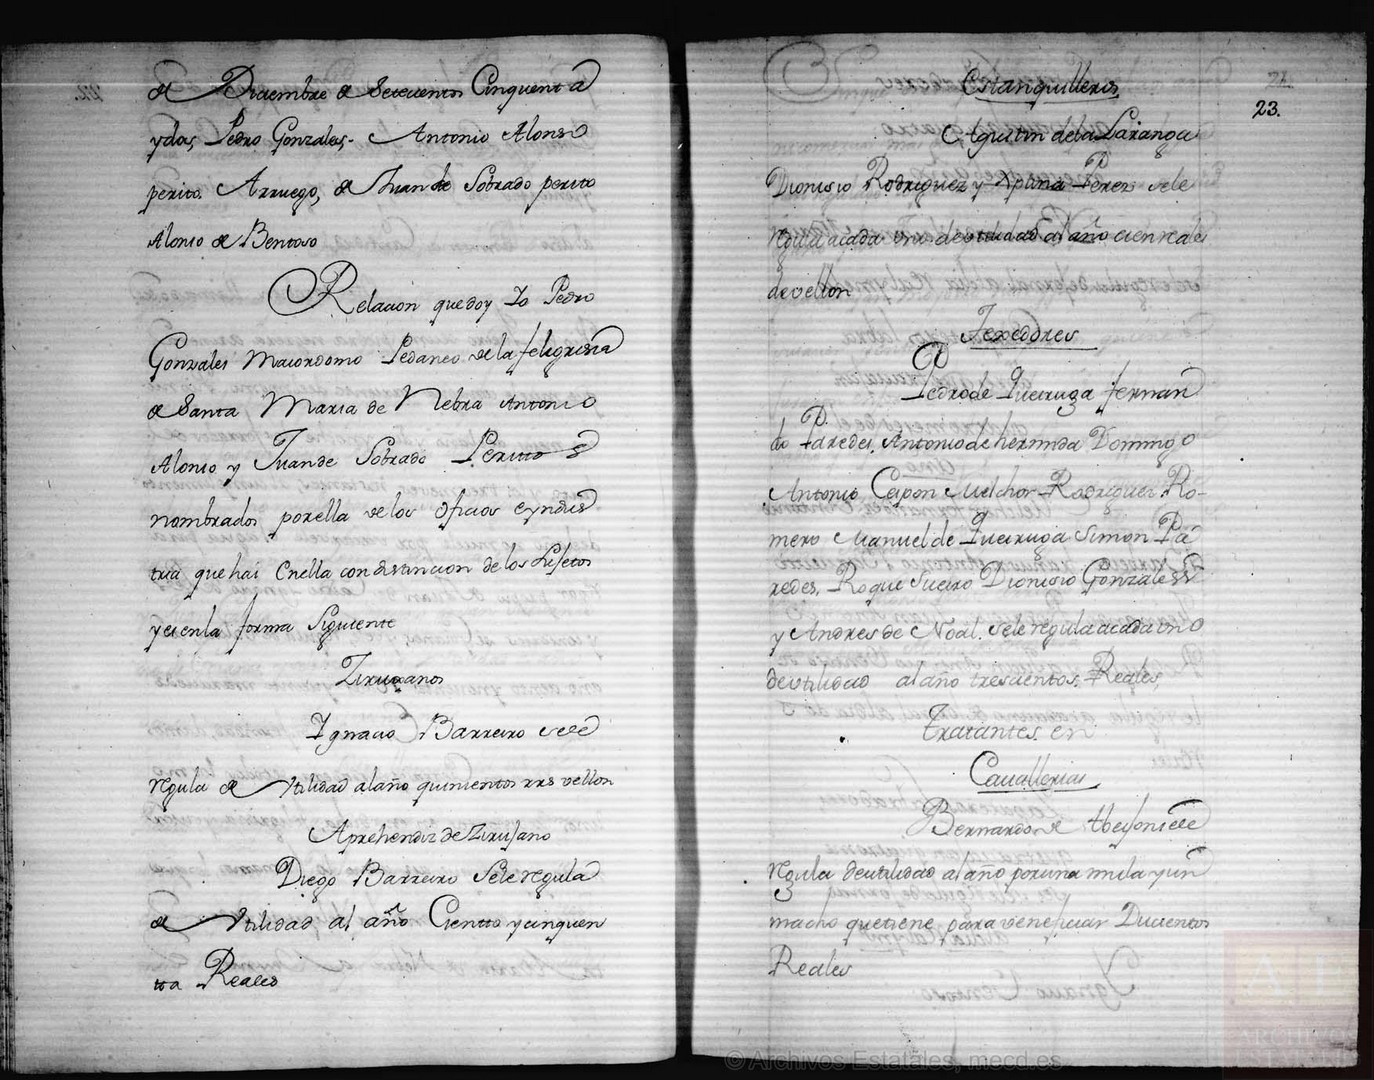 de Diziembre de Setecientos Cinquenta
y dos, Pedro Gonzales - Antonio Alonso
perito. Arruego, de Juan de Sobrado perito
Alonso de Bentoso
Relacion que doy Yo Pedro
Gonzales Maiordomo Pedaneo de la feligresia
de Santa Maria de Nebra Antonio
Alonso y Juan de Sobrado Peritos
nombrados por ella de los oficios e yndus
tria que hai en ella con distincion de los Sujetos
y es en la forma Siguiente
Zirujanos
Ygnacio Barreiro se le
regula de Utilidad al año quinientos rrs vellon
Aprehendiz de Zirujano
Diego Barreiro Se le regula
de Utilidad al año Ciento y cinquen
ta Reales
Estanquilleros
21.
23.
Agustin de la
Dionisio Rodriguez y Xptina Perez se le
regula a cada uno de utilidad al año cien reales
de vellon
Texedores
Pedro de Queiruga fernan
do Paredes, Antonio de herminda Domingo
Antonio Capon Melchor Rodriguez Ro-
mero Manuel de Queiruga Simon Pa
redes, Roque Sueiro Dionisio Gonzales
y Andres de Noal. Se le regula a cada uno
de utilidad al año trescientos Reales
Tratantes en
Cavallerias
Bernardo de Abeijon se le
regula de utilidad al año por una mula y un
macho que tiene para veneficiar Ducientos
Reales
© Archivos Estatales, mecd.es
ARCHIVOS
ESTATALES